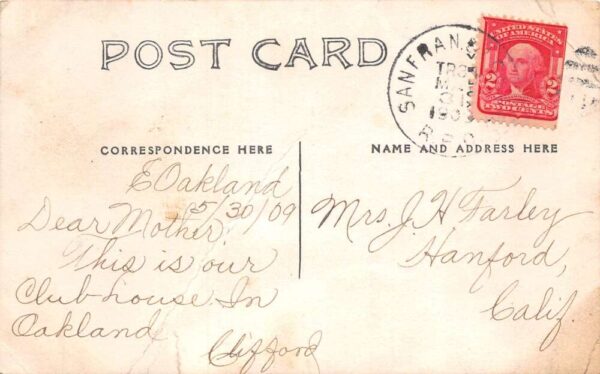 POST CARD
SAN FRAN
R.P.O.
UNITED STATES
OF AMERICA
2 2
POSTAGE
TWO CENTS
CORRESPONDENCE HERE
NAME AND ADDRESS HERE
E Oakland
5/30/09
Dear Mother.
This is our
Club-house In
Oakland
Clifford
Mrs. J. H Farley
Hanford,
Calif.